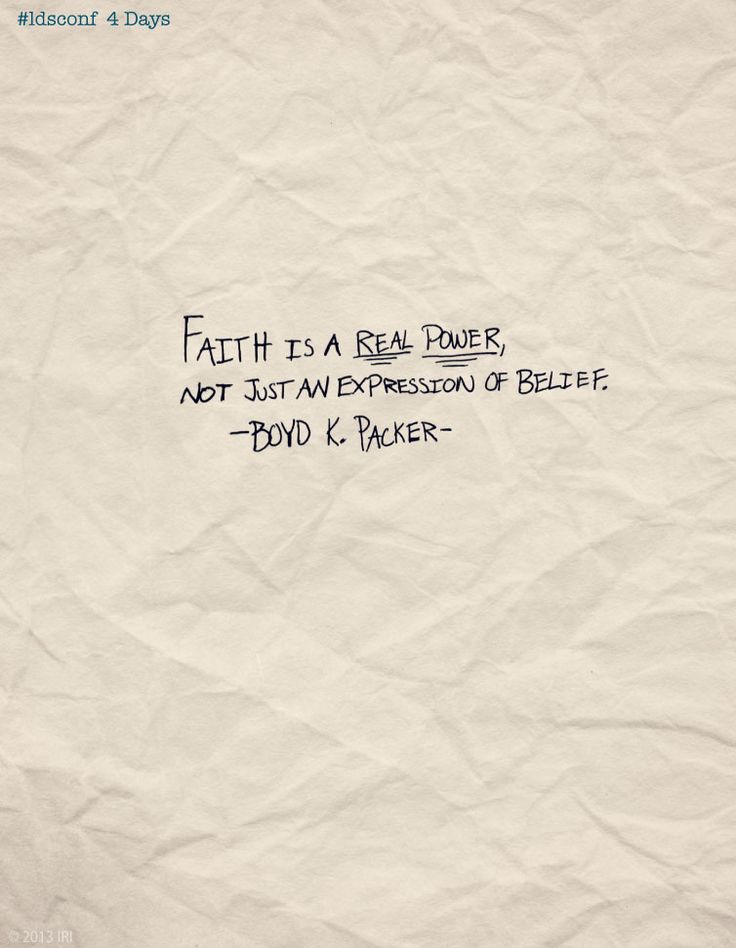 #ldsconf 4 Days
FAITH IS A REAL POWER,
NOT JUST AN EXPRESSION OF BELIEF.
-BOYD K. PACKER-
© 2013 IRI